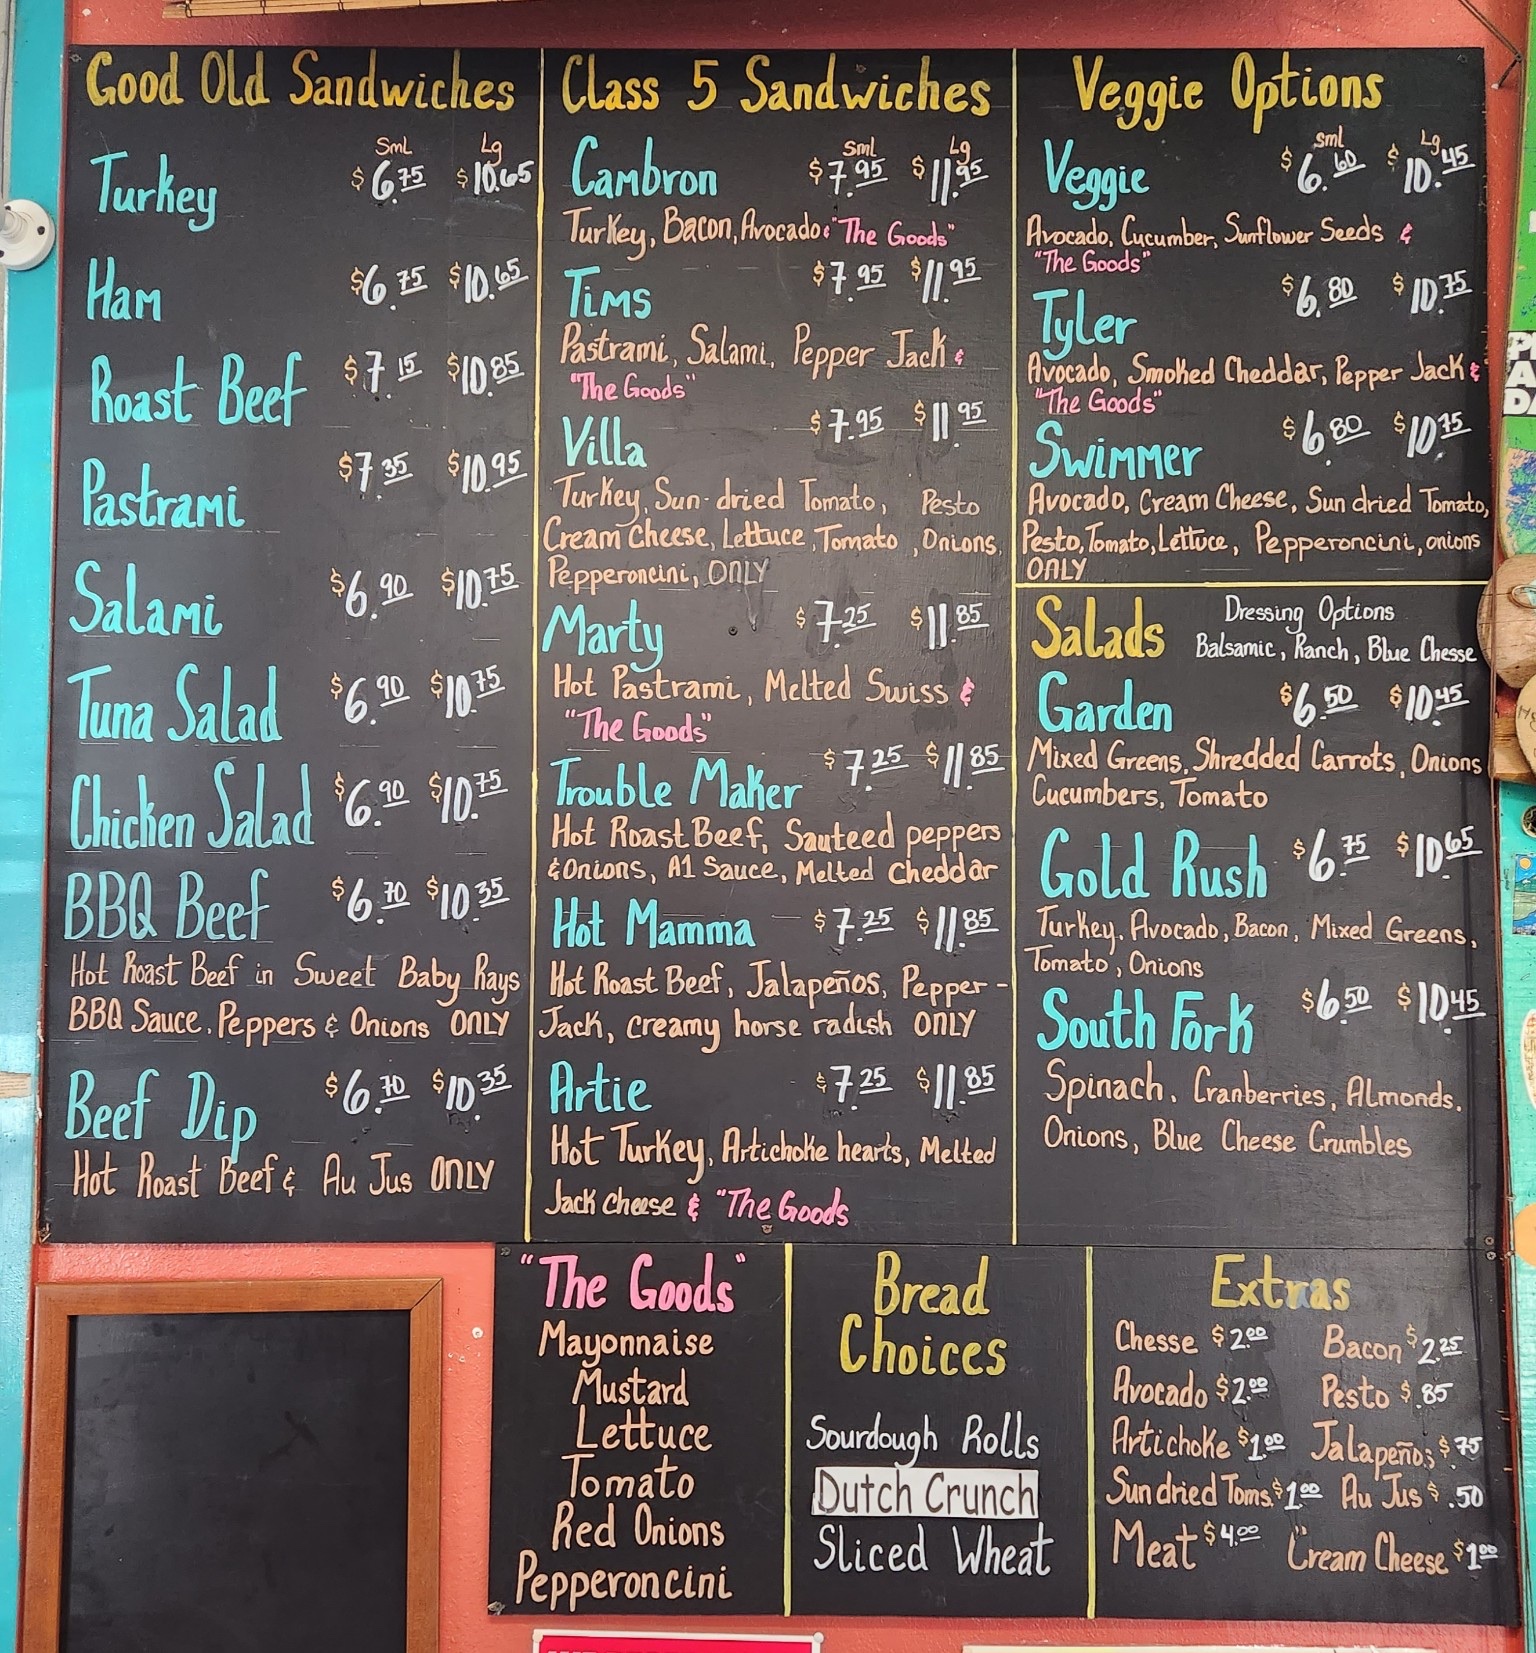 Good Old Sandwiches
Sml Lg
Turkey $6.75 $10.65
Ham $6.75 $10.65
Roast Beef $7.15 $10.85
Pastrami $7.35 $10.95
Salami $6.90 $10.75
Tuna Salad $6.90 $10.75
Chicken Salad $6.90 $10.75
BBQ Beef $6.70 $10.35
Hot Roast Beef in Sweet Baby Rays
BBQ Sauce, Peppers & Onions ONLY
Beef Dip $6.70 $10.35
Hot Roast Beef & Au Jus ONLY
Class 5 Sandwiches
Sml Lg
Cambron $7.95 $11.95
Turkey, Bacon, Avocado & "The Goods"
Tims $7.95 $11.95
Pastrami, Salami, Pepper Jack &
"The Goods"
Villa $7.95 $11.95
Turkey, Sun-dried Tomato, Pesto
Cream Cheese, Lettuce, Tomato, Onions,
Pepperoncini, ONLY
Marty $7.25 $11.85
Hot Pastrami, Melted Swiss &
"The Goods"
Trouble Maker $7.25 $11.85
Hot Roast Beef, Sauteed peppers
& Onions, A1 Sauce, Melted cheddar
Hot Mamma $7.25 $11.85
Hot Roast Beef, Jalapeños, Pepper-
Jack, creamy horse radish ONLY
Artie $7.25 $11.85
Hot Turkey, Artichoke hearts, Melted
Jack cheese & "The Goods
Veggie Options
sml Lg
Veggie $6.60 $10.45
Avocado, Cucumber, Sunflower Seeds &
"The Goods"
Tyler $6.80 $10.75
Avocado, Smoked Cheddar, Pepper Jack &
"The Goods"
Swimmer $6.80 $10.75
Avocado, Cream Cheese, Sun dried Tomato,
Pesto, Tomato, Lettuce, Pepperoncini, onions
ONLY
Salads
Dressing Options
Balsamic, Ranch, Blue Chesse
Garden $6.50 $10.45
Mixed Greens, Shredded Carrots, Onions
Cucumbers, Tomato
Gold Rush $6.75 $10.65
Turkey, Avocado, Bacon, Mixed Greens,
Tomato, Onions
South Fork $6.50 $10.45
Spinach, Cranberries, Almonds.
Onions, Blue Cheese Crumbles
"The Goods"
Mayonnaise
Mustard
Lettuce
Tomato
Red Onions
Pepperoncini
Bread
Choices
Sourdough Rolls
Dutch Crunch
Sliced Wheat
Extras
Chesse $2.00 Bacon $2.25
Avocado $2.00 Pesto $.85
Artichoke $1.00 Jalapeños $.75
Sundried Toms. $1.00 Au Jus $.50
Meat $4.00 Cream Cheese $1.00